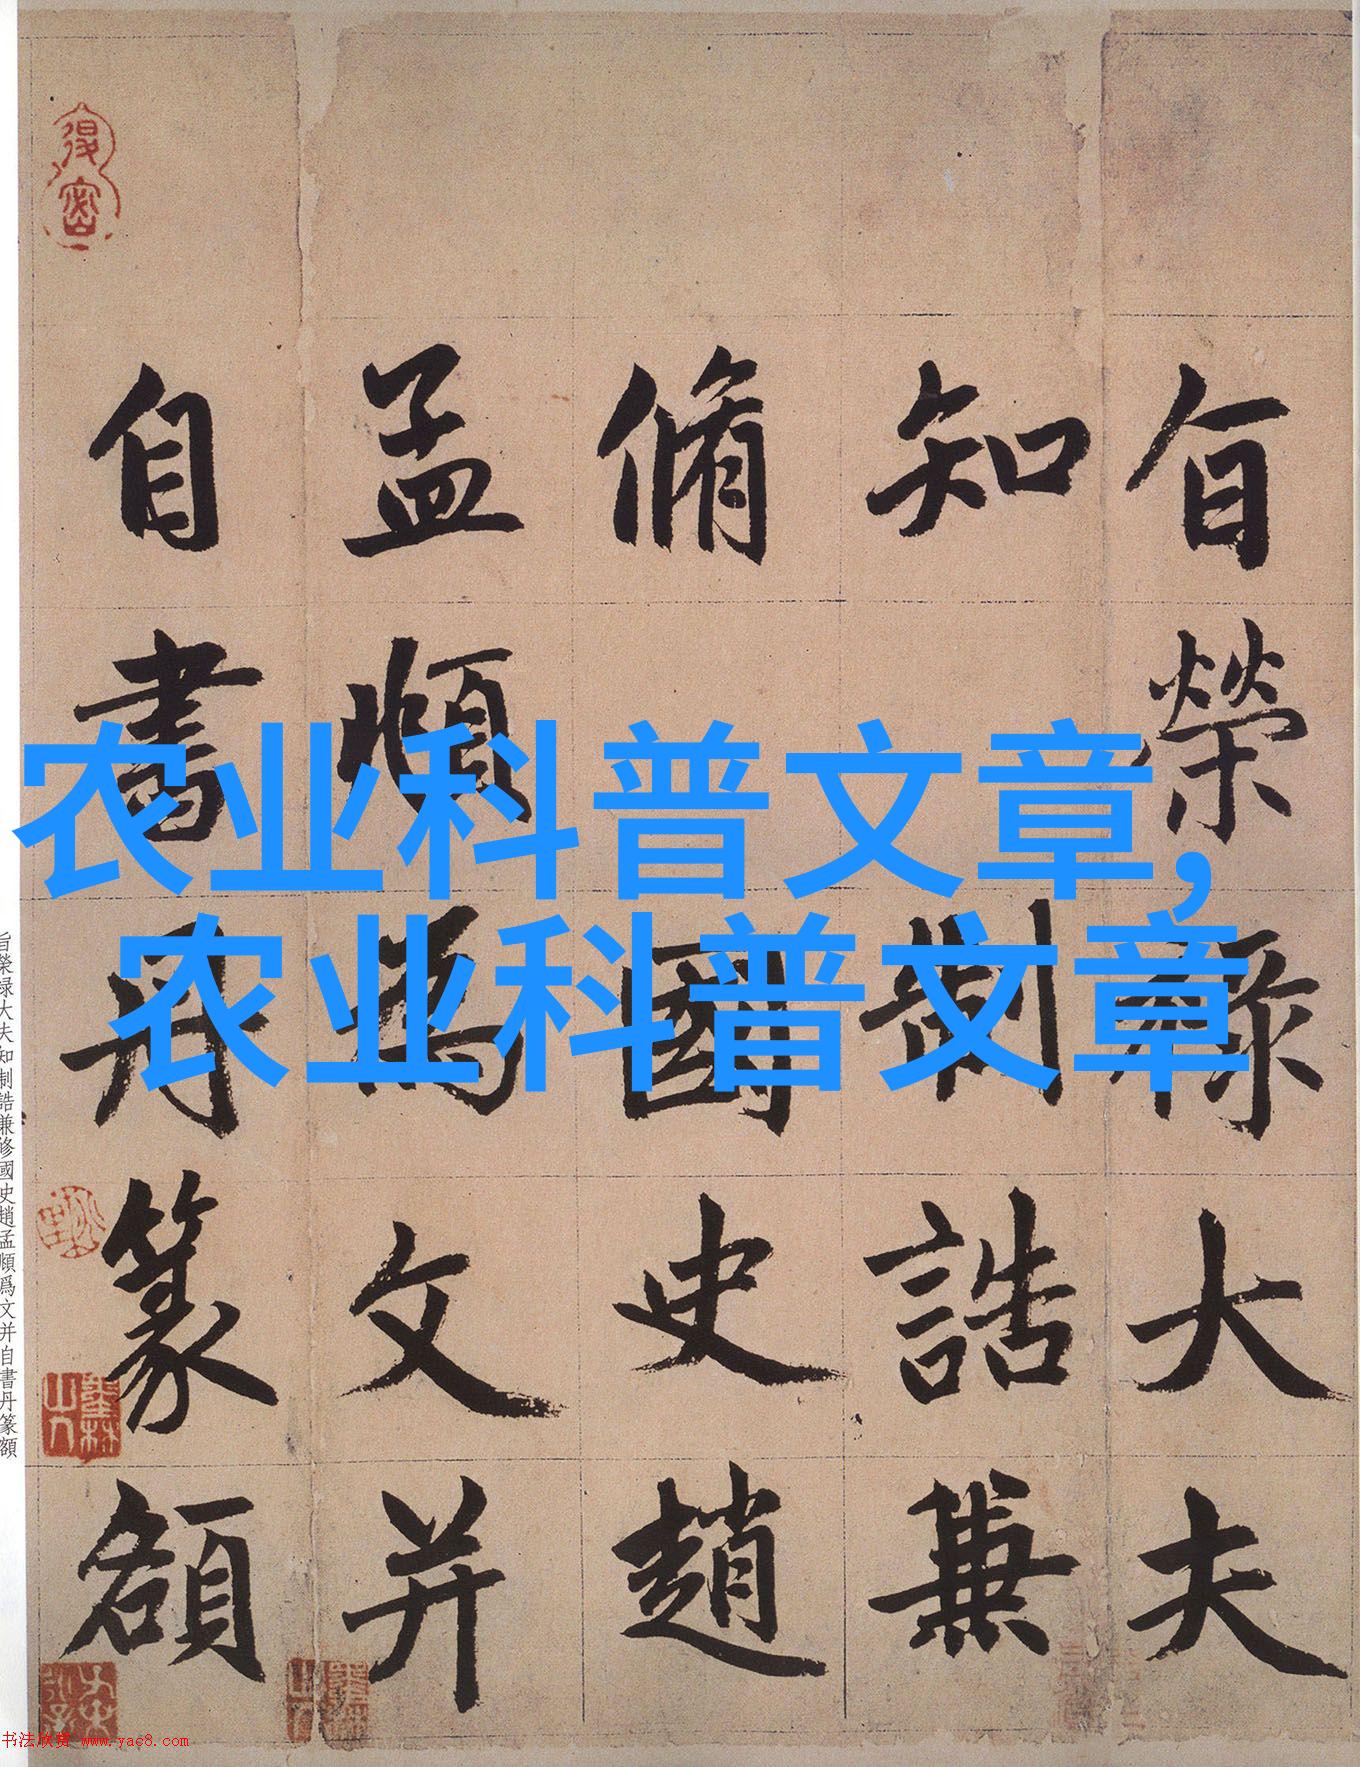 旨榮祿大夫
知制誥兼
脩國史趙
孟頫為文并
自書丹篆額
农业科普文章,
农业科普文章
旨榮禄大夫知制誥兼修國史趙孟頫爲文并自書丹篆額
书法欣赏 www.yac8.com